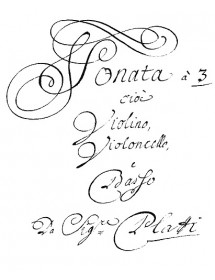 Sonata à 3
cioè
Violino,
Violoncello,
e
Basso
Da Sig.re Platti